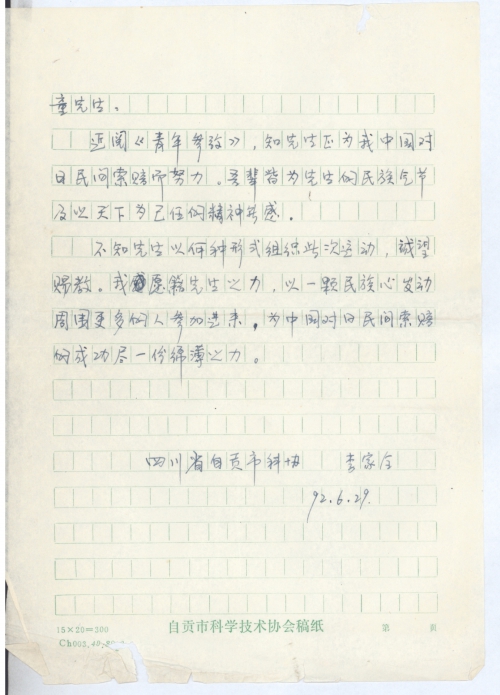 童先生、
近阅《青年参考》，知先生正为我中国对
日民间索赔而努力。吾辈皆为先生的民族气节
及以天下为己任的精神共感。
不知先生以何种形式组织此次运动，诚望
赐教。我愿籍先生之力，以一颗民族心发动
周围更多的人参加进来，为中国对日民间索赔
的成功尽一份绵薄之力。
四川省自贡市科协 李家全
92.6.29.
15×20=300 自贡市科学技术协会稿纸 第 页